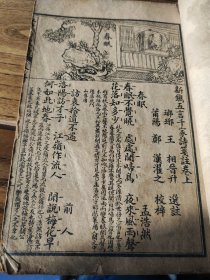 春眠
新鐫五言千家詩箋註卷上
瑯琊 王 相晉升 選註
莆陽 鄭 漢濯之 校梓
春眠 孟浩然
春眠不覺曉 處處聞啼鳥 夜來風雨聲
花落知多少
訪袁拾遺不遇 前人
洛陽訪才子 江嶺作流人 聞說梅花早
何如此地春